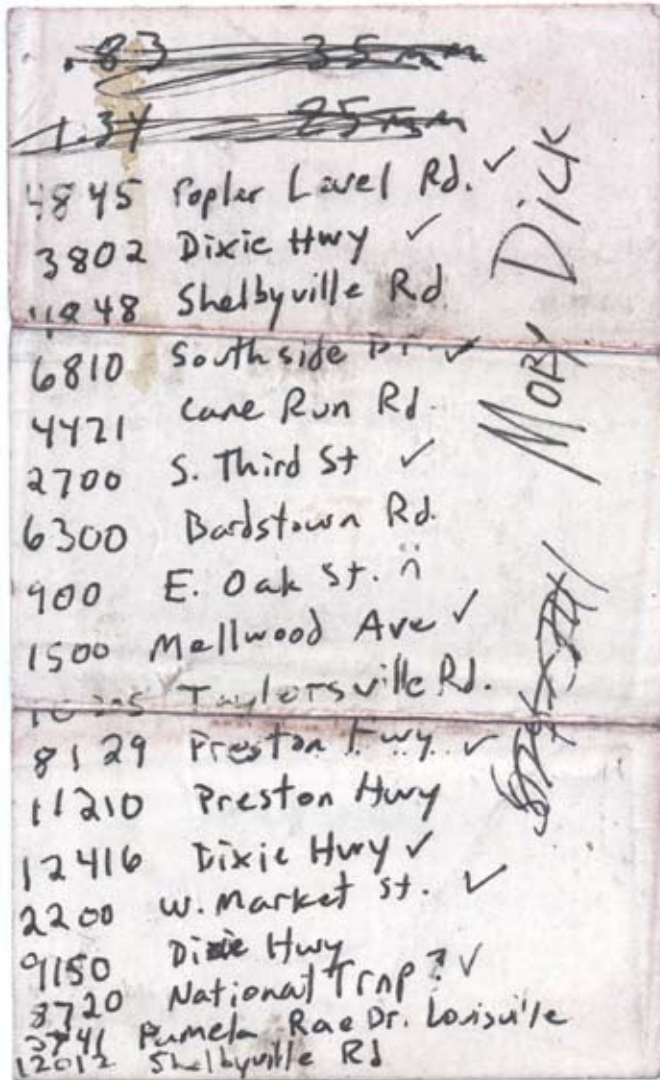 .83 35mm
1.34 25mm
4845 Popler Lavel Rd. ✓
3802 Dixie Hwy ✓
48 Shelbyville Rd
6810 Southside Dr ✓
4421 Cane Run Rd.
2700 S. Third St ✓
6300 Bardstown Rd.
900 E. Oak St.
1500 Mellwood Ave ✓
Taylorsville Rd.
8129 Preston Hwy ✓
11210 Preston Hwy
12416 Dixie Hwy ✓
2200 W. Market St. ✓
9150 Dixie Hwy
8720 National Trnp ? ✓
3741 Pamela Rae Dr. Louisville
12012 Shelbyville Rd
MOBY DICK